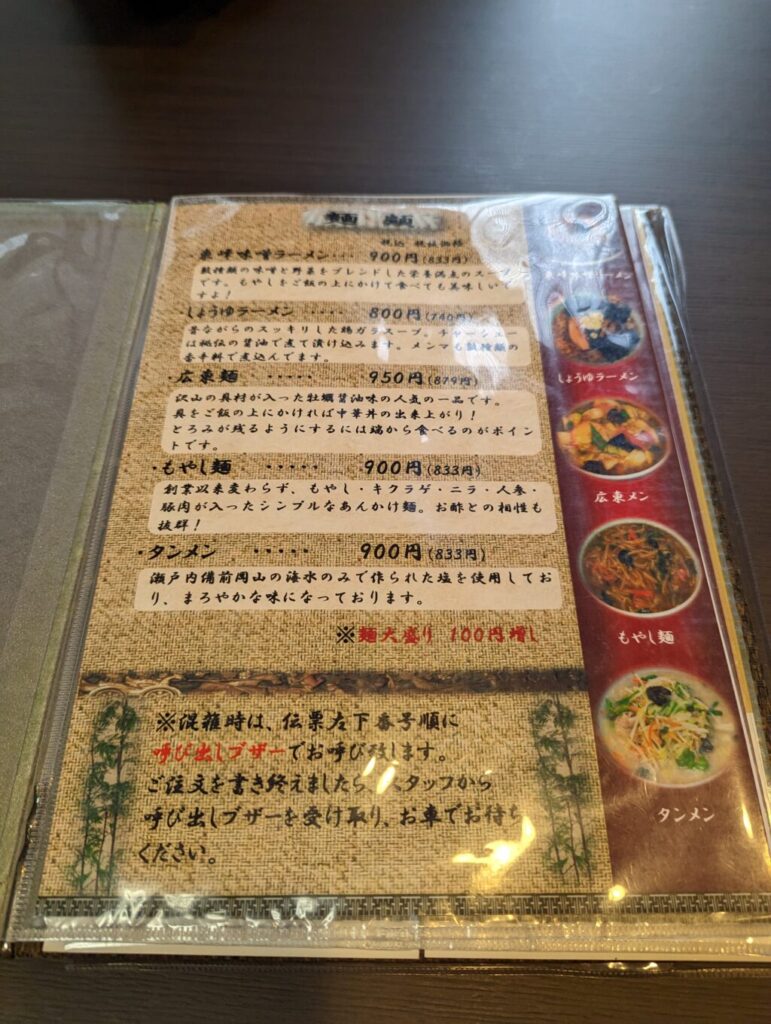 麺類
税込 税抜価格
・東峰味噌ラーメン・・・ 900円(833円)
数種類の味噌と野菜をブレンドした栄養満点のスープ
です。もやしをご飯の上にかけて食べても美味しいで
すよ!
・しょうゆラーメン ・・・・・ 800円(740円)
昔ながらのスッキリした鶏ガラスープ。チャーシュー
は秘伝の醤油で煮て漬け込みます。メンマも数種類の
香辛料で煮込んでます。
・広東麺 ・・・・・ 950円(879円)
沢山の具材が入った牡蠣醤油味の人気の一品です。
具をご飯の上にかければ中華丼の出来上がり!
とろみが残るようにするには端から食べるのがポイン
トです。
・もやし麺 ・・・・・ 900円(833円)
創業以来変わらず、もやし・キクラゲ・ニラ・人参・
豚肉が入ったシンプルなあんかけ麺。お酢との相性も
抜群!
・タンメン ・・・・・ 900円(833円)
瀬戸内備前岡山の海水のみで作られた塩を使用してお
り、まろやかな味になっております。
※麺大盛り 100円増し
※混雑時は、伝票左下番号順に
呼び出しブザーでお呼び致します。
ご注文を書き終えましたら、スタッフから
呼び出しブザーを受け取り、お車でお待ち
ください。
東峰味噌ラーメン
しょうゆラーメン
広東メン
もやし麺
タンメン